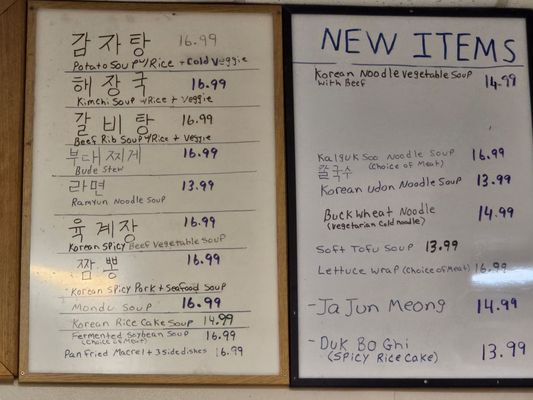 감자탕 16.99
Potato Soup w/Rice + Cold Veggie
해장국 16.99
Kimchi Soup w/Rice + Veggie
갈비탕 16.99
Beef Rib Soup w/Rice + Veggie
부대찌게 16.99
Bude Stew
라면 13.99
Ramyun Noodle Soup
육계장 16.99
Korean Spicy Beef Vegetable Soup
짬뽕 16.99
Korean Spicy Pork + Seafood Soup
Mondu Soup 16.99
Korean Rice Cake Soup 14.99
Fermented Soybean Soup 16.99
(Choice of Meat)
Pan Fried Macrel + 3 Side dishes 16.99
NEW ITEMS
Korean Noodle Vegetable Soup 14.99
with Beef
Kalguk Soo Noodle Soup 16.99
칼국수 (Choice of Meat)
Korean Udon Noodle Soup 13.99
Buckwheat Noodle 14.99
(Vegetarian Cold noodle)
Soft Tofu Soup 13.99
Lettuce Wrap (Choice of Meat) 16.99
-Ja Jun Meong 14.99
-Duk Bo Ghi 13.99
(Spicy Rice Cake)